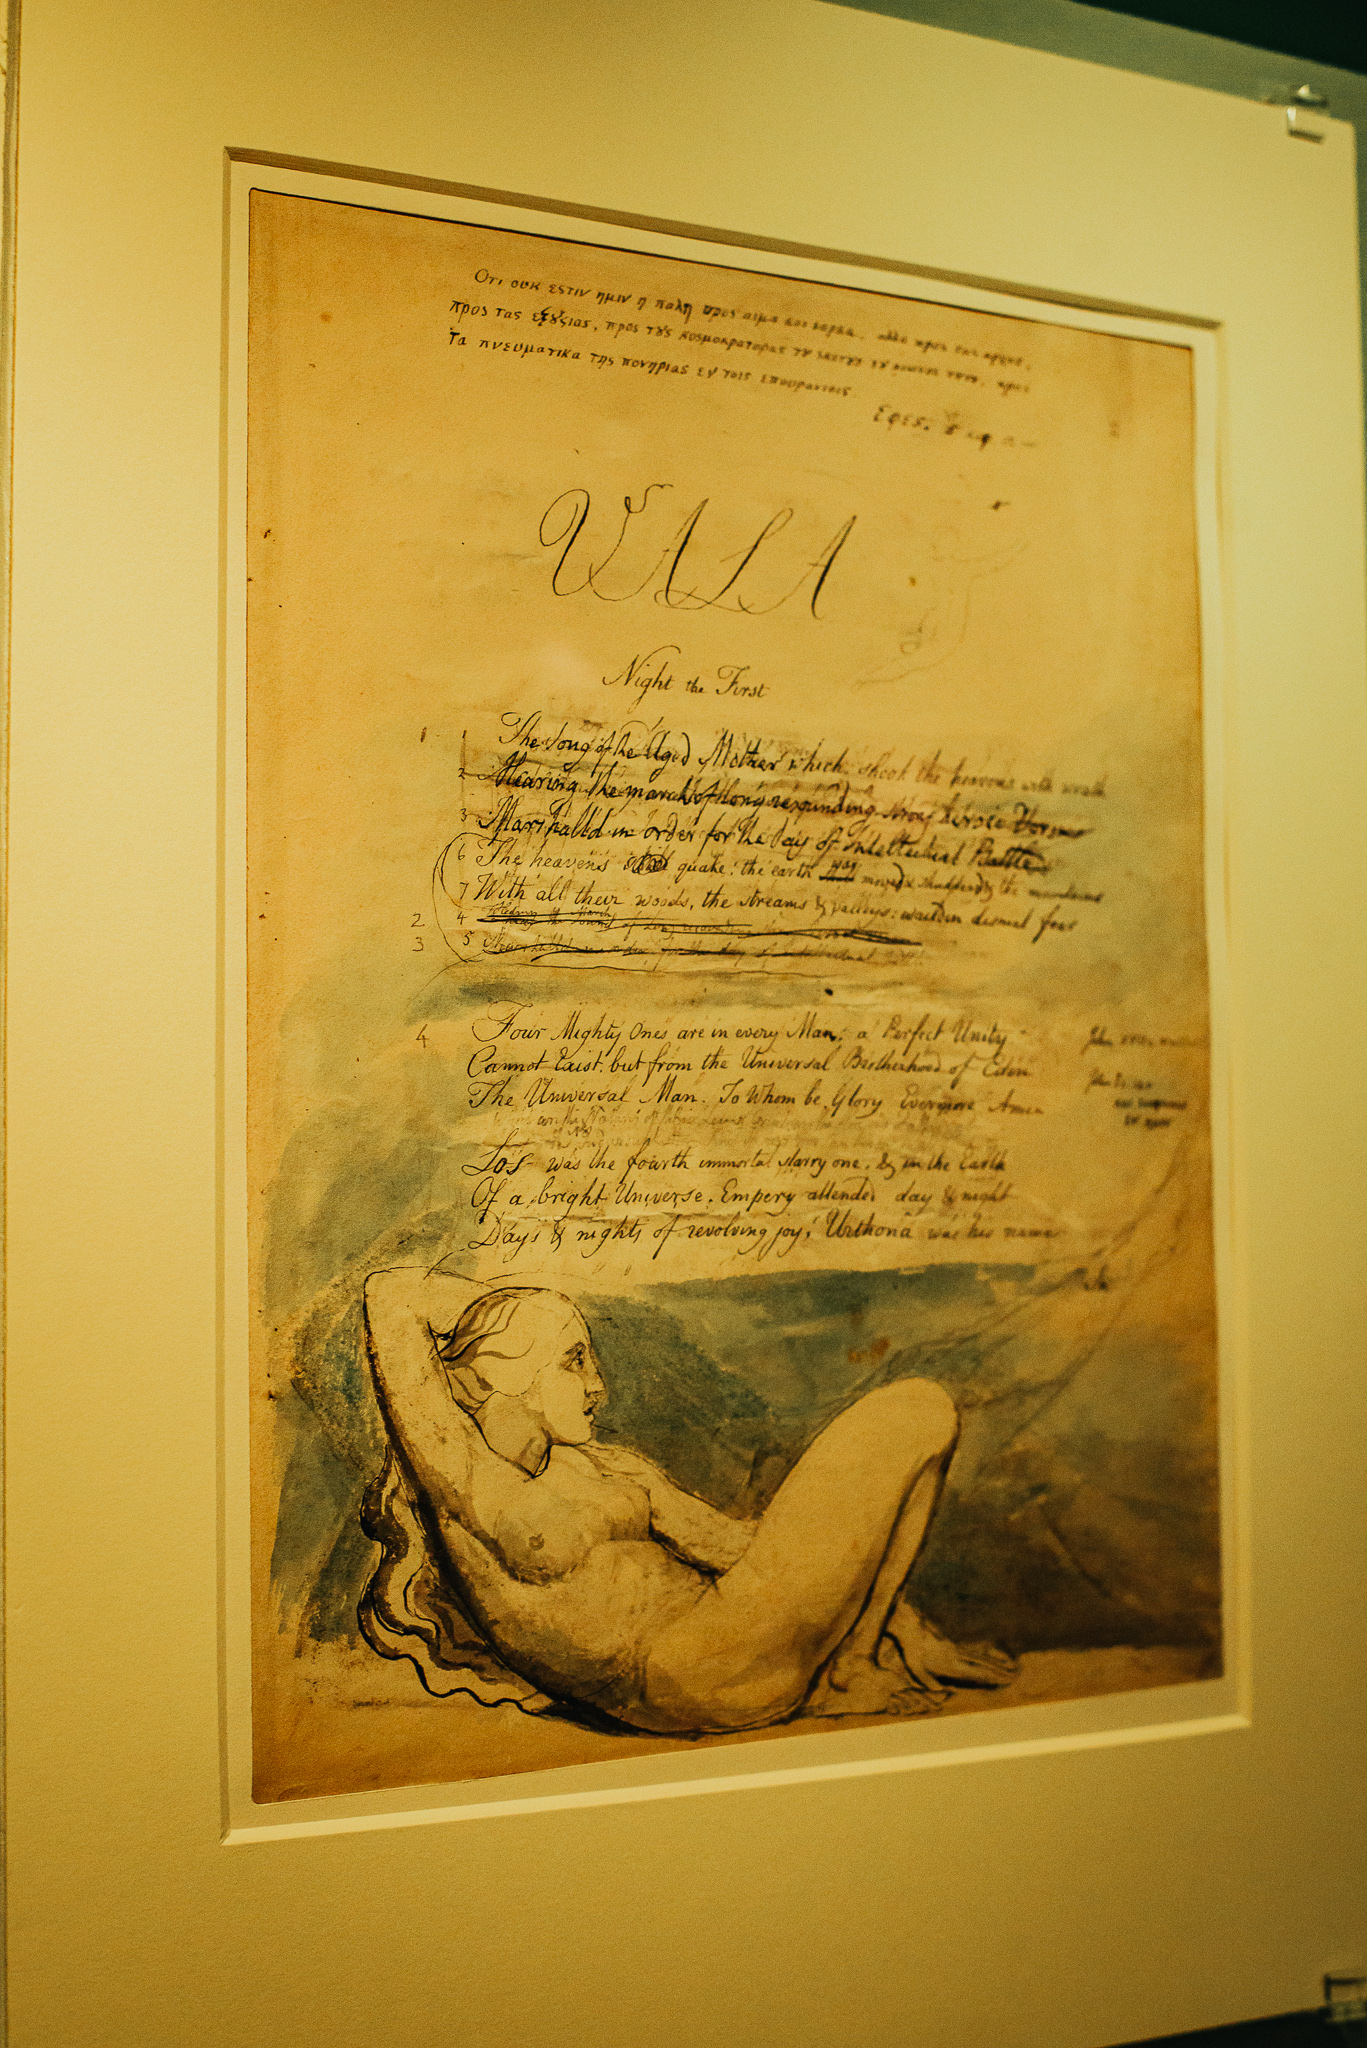 Οτι ουκ εστιν ημιν η παλη προς αιμα και σαρκα, αλλα προς τας αρχας,
προς τας εξȣσιας, προς τȣς κοσμοκρατορας τȣ σκοτȣς τȣ αιωνος τȣτȣ, προς
τα πνευματικα της πονηριας εν τοις επουρανιοις
Εφες.
VALA
Night the First
1 1 The Song of the Aged Mother which shook the heavens with wrath
2 Hearing the march of long resounding strong heroic Verse
3 Marshalld in order for the day of Intellectual Battle
6 The heavens quake: the earth was moved & shudderd & the mountains
7 With all their woods, the streams & valleys: waild in dismal fear
2 4 Hearing the March of long
3 5 Marshalld in order for the day of Intellectual
4 Four Mighty Ones are in every Man: a Perfect Unity
Cannot Exist. but from the Universal Brotherhood of Eden
The Universal Man. To Whom be Glory Evermore Amen
Los was the fourth immortal starry one, & in the Earth
Of a bright Universe, Empery attended day & night
Days & nights of revolving joy, Urthona was his name
John
John